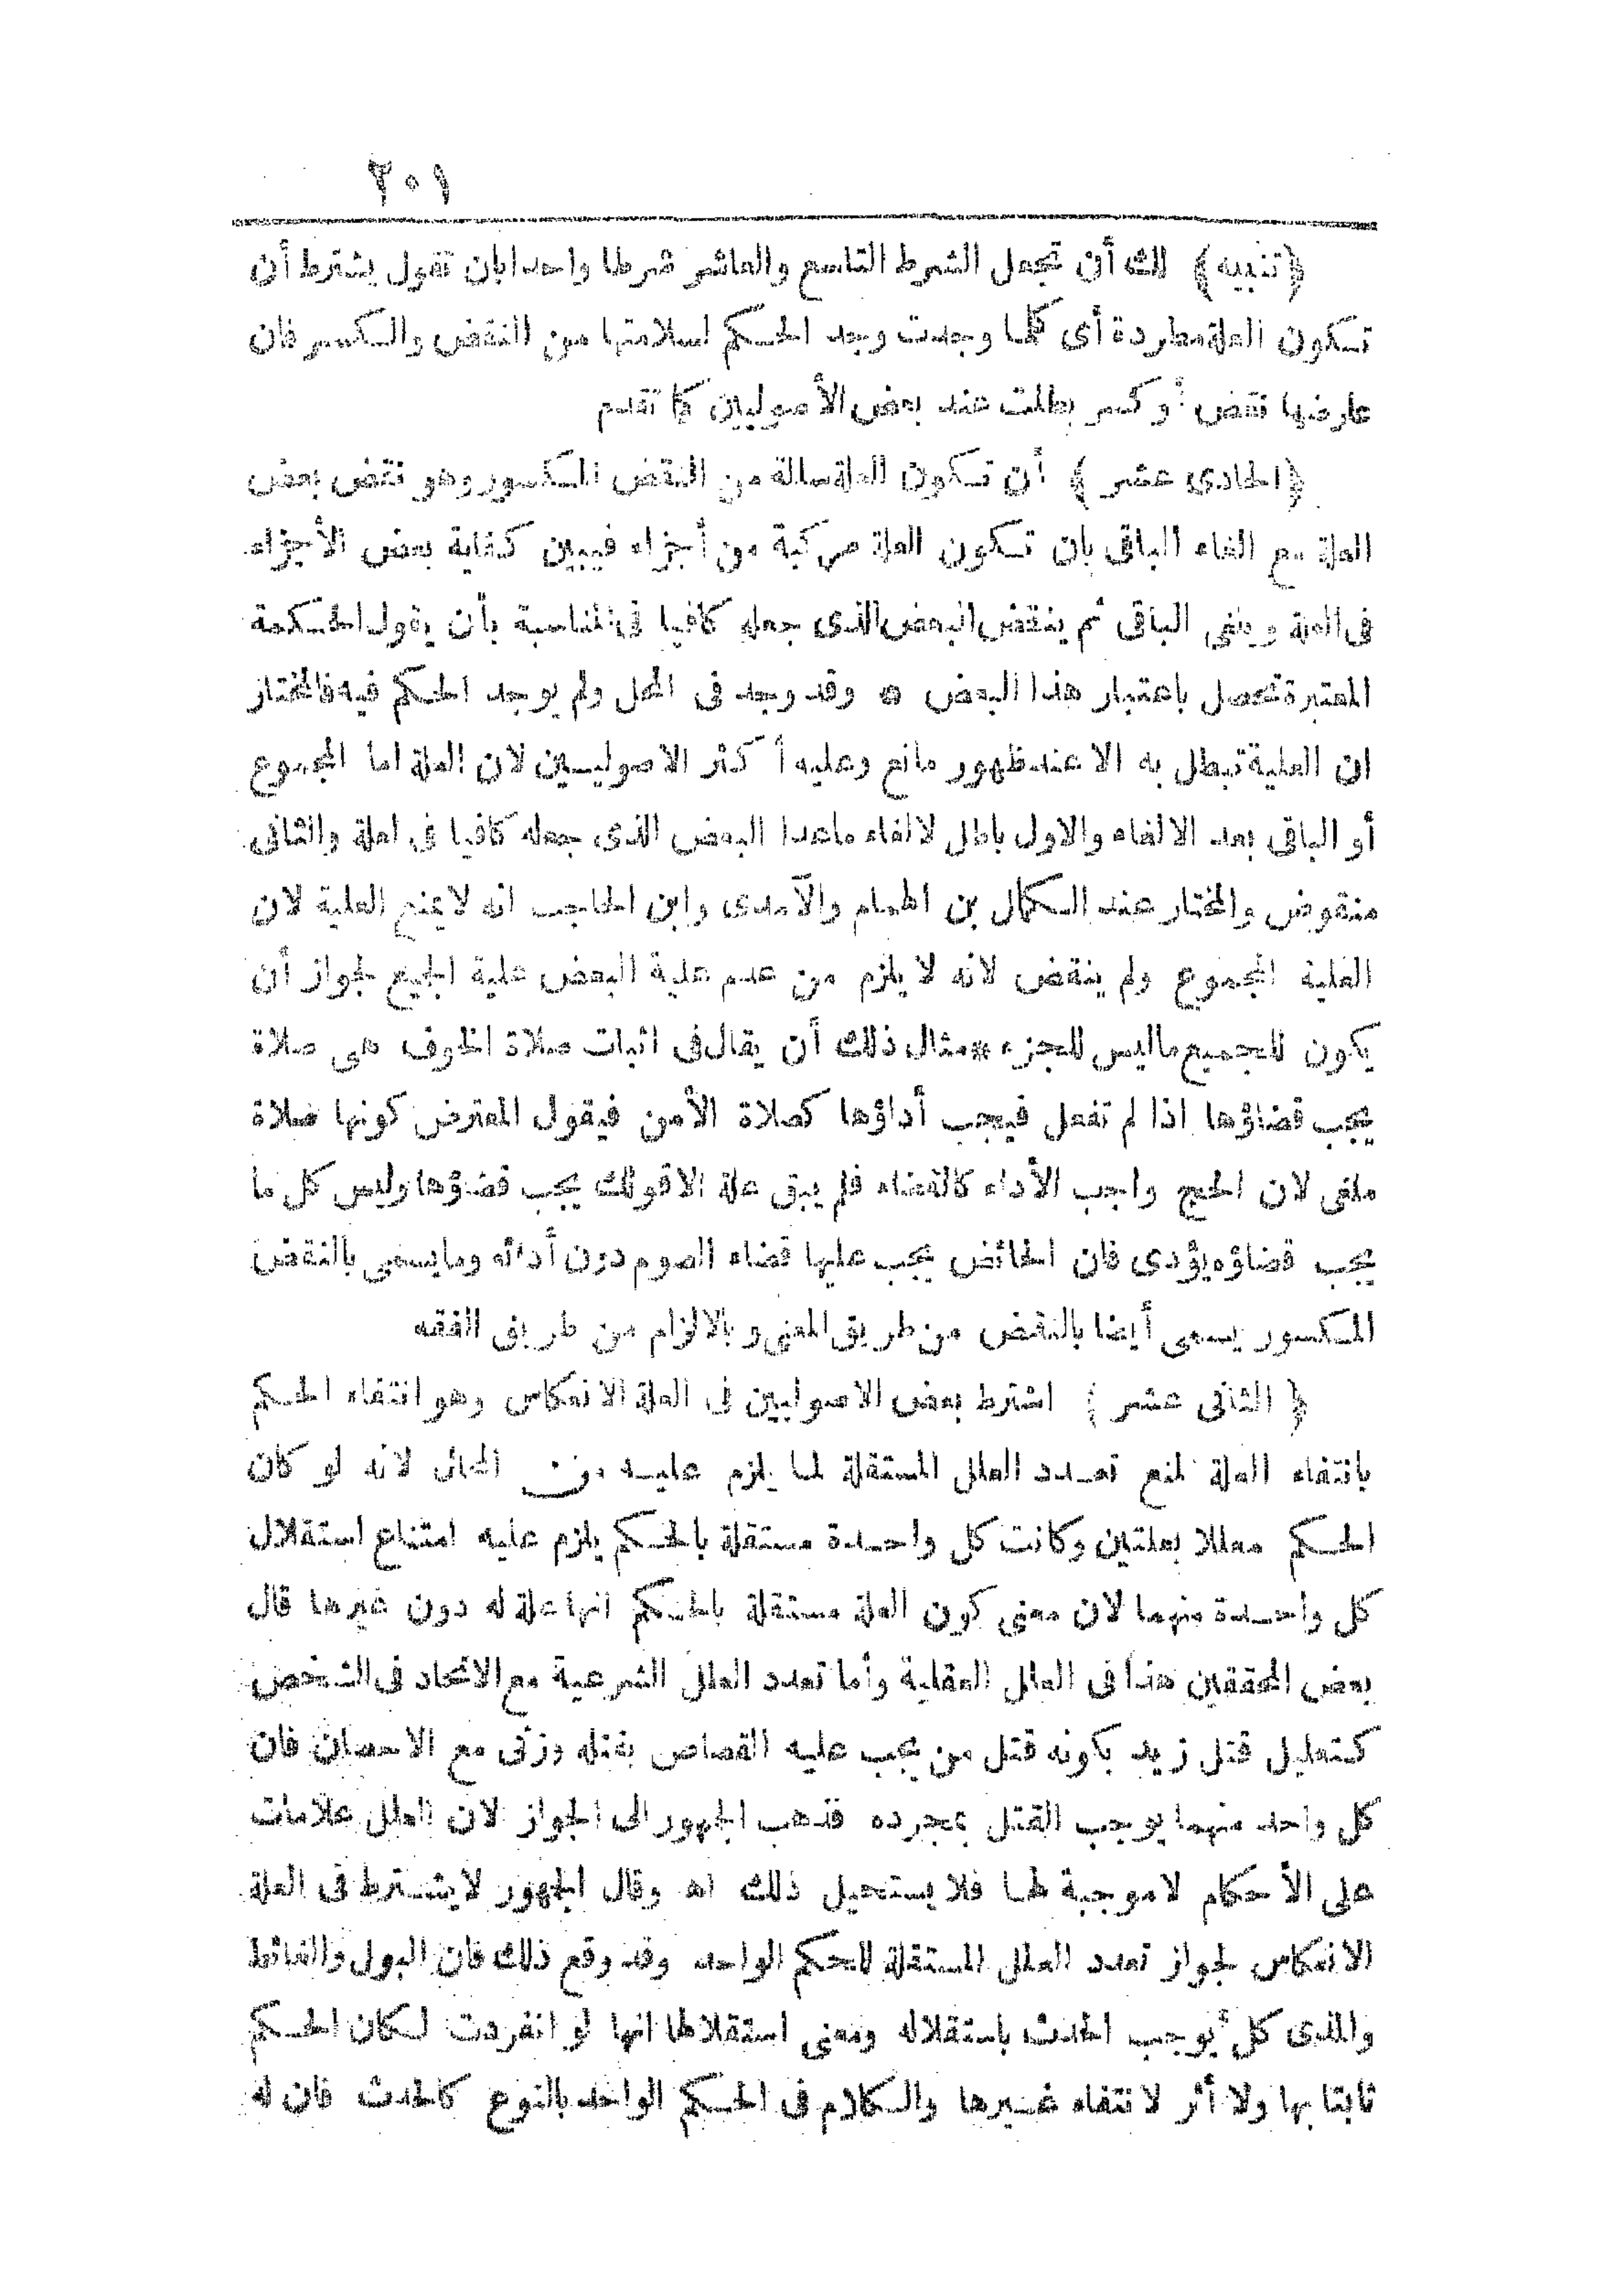 ٢٠١
﴿تنبيه﴾ لك أن تجعل الشرط التاسع والعاشر شرطا واحدا بان تقول يشترط أن
تكون العلة مطردة أى كلما وجدت وجد الحكم لسلامتها من النقض والكسر فان
عارضها نقض أو كسر بطلت عند بعض الأصوليين كما تقدم
﴿الحادى عشر﴾ أن تكون العلة سالمة من النقض المكسور وهو نقض بعض
العلة مع الغاء الباقى بان تكون العلة مركبة من أجزاء فيبين كفاية بعض الأجزاء
فى العلة ويلغى الباقى ثم ينقض البعض الذى جعله كافيا فى المناسبة بأن يقول الحكمة
المعتبرة تحصل باعتبار هذا البعض * وقد وجد فى المحل ولم يوجد الحكم فيه فالمختار
ان العلية تبطل به الا عند ظهور مانع وعليه أكثر الاصوليين لان العلة اما المجموع
أو الباقى بعد الالغاء والاول باطل لالغاء ماعدا البعض الذى جعله كافيا فى العلة والثانى
منقوض والمختار عند الكمال بن الهمام والآمدى وابن الحاجب انه لا يمنع العلية لان
العلية المجموع ولم ينقض لانه لا يلزم من عدم علية البعض علية الجميع لجواز أن
يكون للجميع ماليس للجزء * مثال ذلك أن يقال فى اثبات صلاة الخوف هى صلاة
يجب قضاؤها اذا لم تفعل فيجب أداؤها كصلاة الأمن فيقول المعترض كونها صلاة
ملغى لان الحج واجب الأداء كالقضاء فلم يبق علة الا قولك يجب قضاؤها وليس كل ما
يجب قضاؤه يؤدى فان الحائض يجب عليها قضاء الصوم دون أدائه ومايسمى بالنقض
المكسور يسمى أيضا بالنقض من طريق المعنى وبالالزام من طريق الفقه
﴿الثانى عشر﴾ اشترط بعض الاصوليين فى العلة الانعكاس وهو انتفاء الحكم
بانتفاء العلة لمنع تعدد العلل المستقلة لما يلزم عليه من المحال لانه لو كان
الحكم معللا بعلتين وكانت كل واحدة مستقلة بالحكم يلزم عليه امتناع استقلال
كل واحدة منهما لان معنى كون العلة مستقلة بالحكم انها علة له دون غيرها قال
بعض المحققين هذا فى العلل العقلية وأما تعدد العلل الشرعية مع الاتحاد فى الشخص
كتعليل قتل زيد بكونه قتل من يجب عليه القصاص بقتله وزنى مع الاحصان فان
كل واحد منهما يوجب القتل بمجرده فذهب الجمهور الى الجواز لان العلل علامات
على الأحكام لا موجبة لها فلا يستحيل ذلك اه وقال الجمهور لا يشترط فى العلة
الانعكاس لجواز تعدد العلل المستقلة للحكم الواحد وقد وقع ذلك فان البول والغائط
والمذى كل يوجب الحدث باستقلاله ومعنى استقلالها انها لو انفردت لكان الحكم
ثابتا بها ولا أثر لانتفاء غيرها والكلام فى الحكم الواحد بالنوع كالحدث فان له